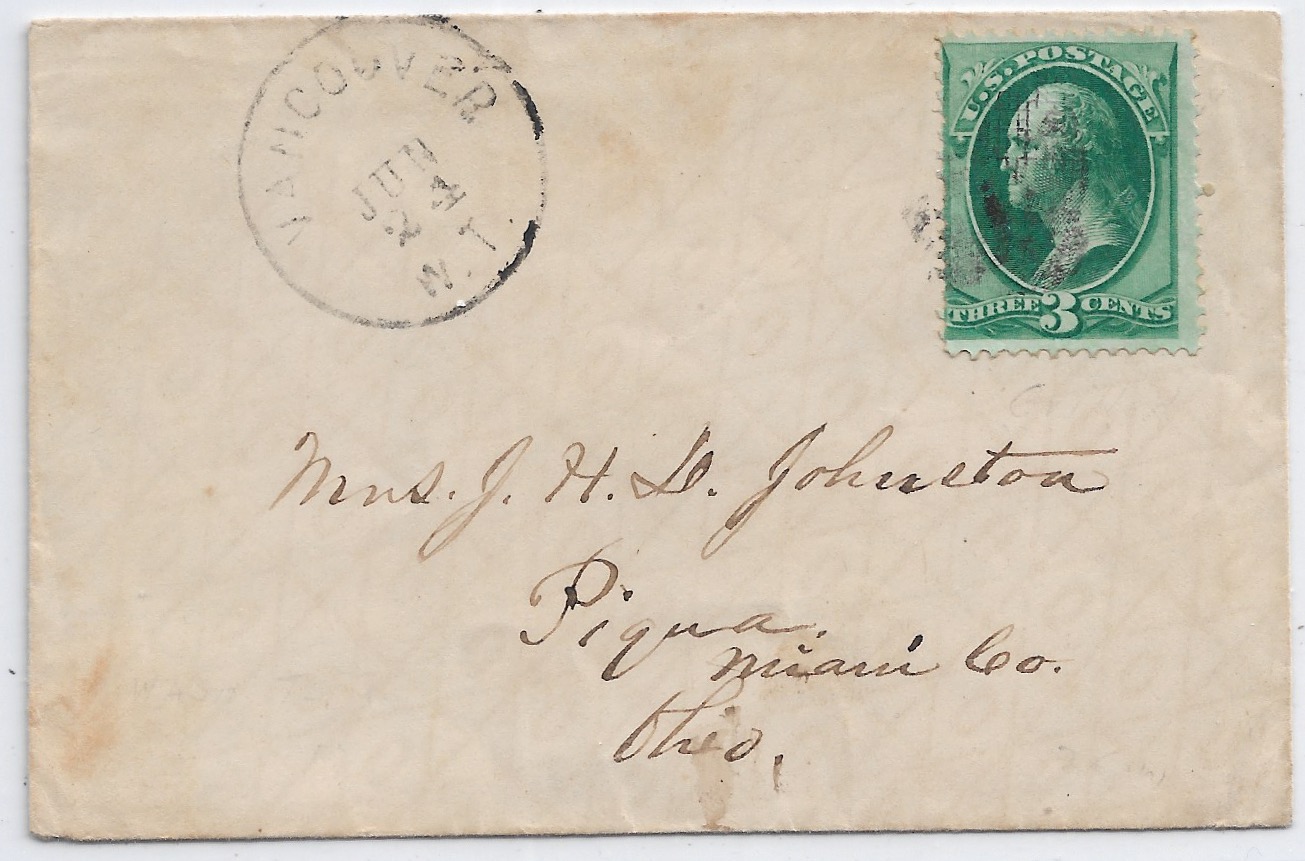 VANCOUVER
JUN
24
W. T.
U.S. POSTAGE
THREE 3 CENTS
Mrs. J. H. D. Johnston
Piqua.
Miami Co.
Ohio,